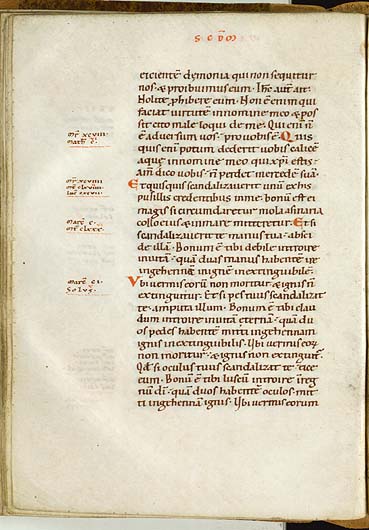 SCDM
eicientē dymonia qui non sequitur
nos & prohibuimus eum. Ihc aut̄ ait.
Nolite phibere eum. Non ē enim qui
faciat virtutē in nomine meo & pos
sit cito male loqui de me. Qui eni n̄
ē adversum vos. pro vobis ē Quis
quis eni potum dederit vobis calicē
aquę in nomine meo quia xp̄i estis.
Am̄ dico vobis. n̄ perdet mercedē suā.
Et quisquis scandalizaverit unū ex his
pusillis credentibus in me. bonū est ei
magis si circumdaretur mola asinaria
collo eius & in mare mitteretur. Et si
scandalizaverit te manus tua. absci
de illā. Bonum ē tibi debile introire
in vitā. quā duas manus habentē ire
in gehennā in ignē inextinguibilē.
Ubi vermis eorū non moritur. & ignis n̄
extinguitur. Et si pes tuus scandalizat
te. amputa illum. Bonum ē tibi clau
dum introire in vitā eternā. quā du
os pedes habentē mitti in gehennam
ignis inextinguibilis. Ubi vermis eor
non moritur. & ignis non extinguit.
Qd si oculus tuus scandalizat te. eice
eum. Bonū ē tibi luscū introire in reg
nū dī. quā duos habentē oculos mit
ti in gehennā ignis. Ubi vermis eorum